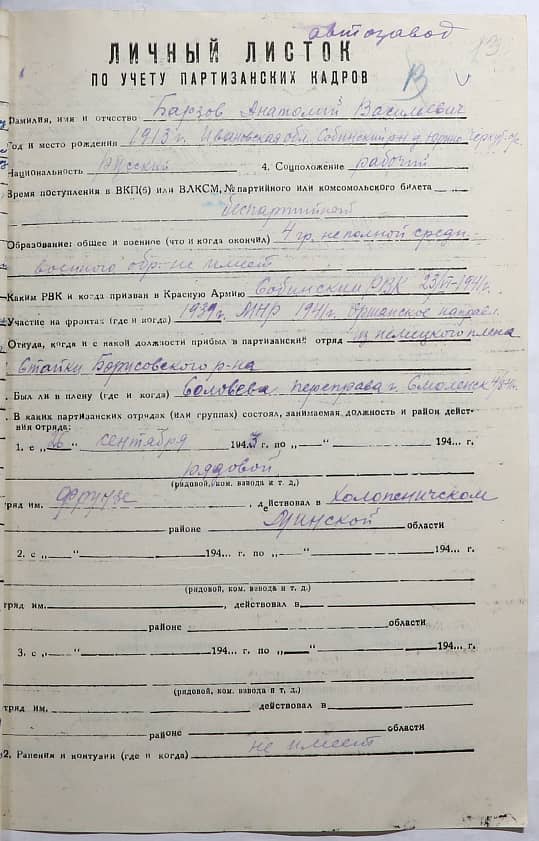 автозавод
13
ЛИЧНЫЙ ЛИСТОК
ПО УЧЕТУ ПАРТИЗАНСКИХ КАДРОВ
В
Фамилия, имя и отчество Барзов Анатолий Васильевич
Год и место рождения 1913 г. Ивановская обл. Собинский р-н д.
Национальность Русский 4. Соцположение рабочий
Время поступления в ВКП(б) или ВЛКСМ, № партийного или комсомольского билета
беспартийный
Образование: общее и военное (что и когда окончил) 4 гр. неполной средн.
военного обр. не имеет
Каким РВК и когда призван в Красную Армию Собинским РВК 23/VI-1941г.
Участие на фронтах (где и когда) 1939г. МНР 1941г. Оршанское направл.
Откуда, когда и с какой должности прибыл в партизанский отряд из немецкого плена
Стайки Борисовского р-на
. Был ли в плену (где и когда) Соловева переправа г. Смоленск
. В каких партизанских отрядах (или группах) состоял, занимаемая должность и район дейст-
вия отряда:
1. с „26" сентября 1943 г. по „—" 194... г.
рядовой
(рядовой, ком. взвода и т. д.)
тряд им. Фрунзе, действовал в Холопеничском
районе Минской области
2. с „—" 194... г. по „—" 194... г.
(рядовой, ком. взвода и т. д.)
тряд им. , действовал в
районе области
3. с „—" 194... г. по „—" 194... г.
(рядовой, ком. взвода и т. д.)
тряд им. действовал в
районе области
2. Ранения и контузии (где и когда) не имеет